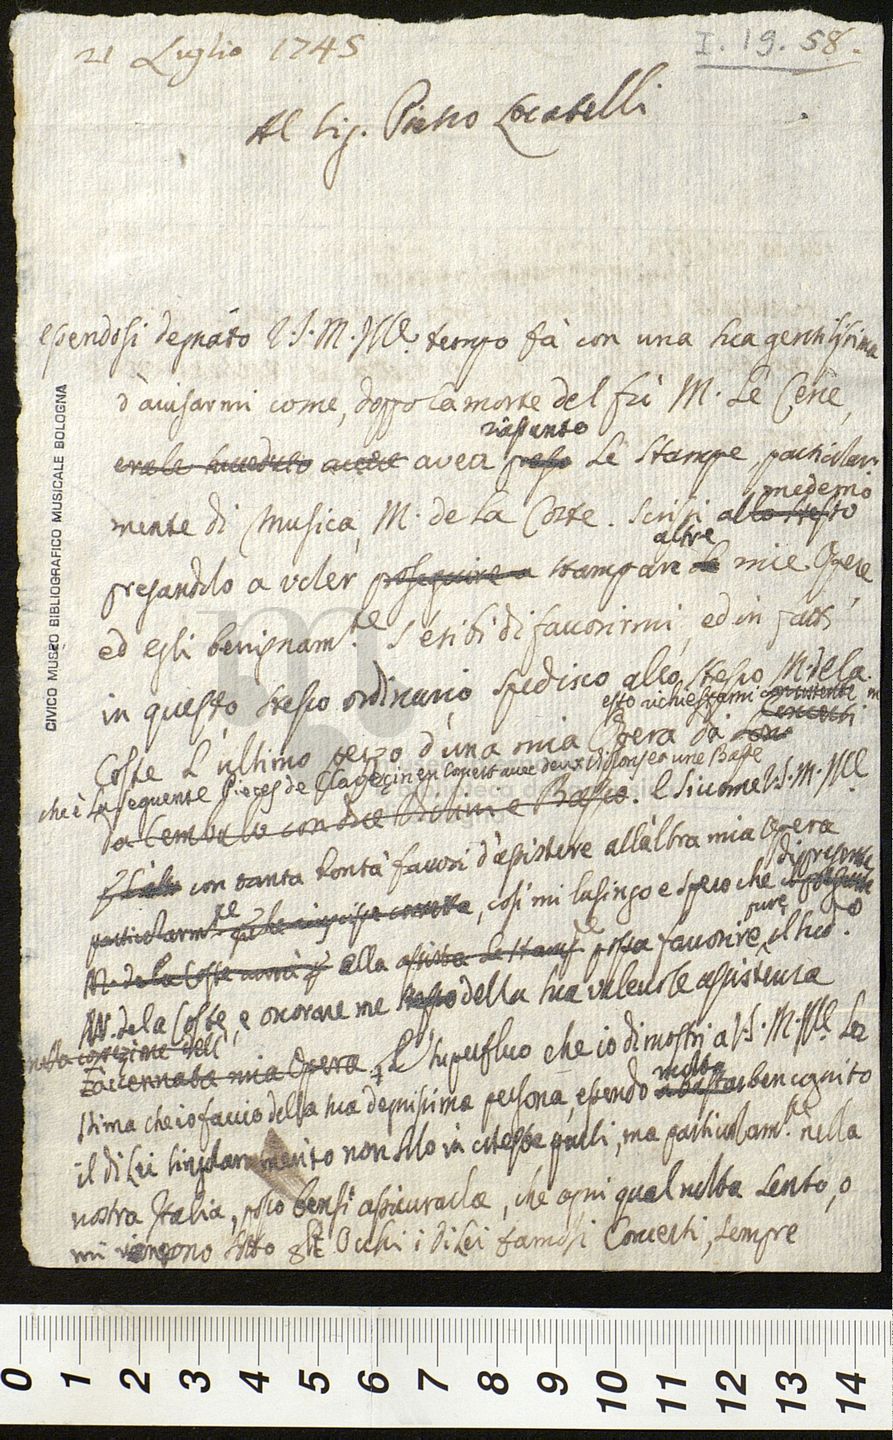 21 Luglio 1745
I. 19. 58.
Al Sig. Pietro Locatelli
Essendosi degnato V.S.M.Ill. tempo fà con una sua gentilissima
d'avisarmi come, doppo la morte del fù M. Le Cene,
riassunto
erale succeduto avea preso le Stampe, particolar-
medemo
mente di Musica, M. de la Coste. Scrissi allo stesso
altre
pregandolo a voler proseguire a stampare le mie Opere,
ed egli benignam.te S'esibì di favorirmi, ed in fatti
in questo stesso ordinario spedisco allo stesso M. de la
esso richiestami
Concerti
Coste L'ultimo pezzo d'una mia Opera da
che è la seguente Pieces de Claveçin en Concert avec deux Violons et une Basse
da Cembalo con due Violini e Basso. E siccome V.S.M.Ill
con tanta bontà favorì d'assistere all'altra mia Opera
di presente
particolarm.te, così mi lusingo e spero che
pure
M. de la Coste alla possa favorire, il sud.o
M. de la Coste, e onorare me della sua valevole assistenza
nella correzione dell'
accennata mia Opera. È superfluo che io dimostri a V.S.M.Ill. La
molto
stima che io faccio della sua degnissima persona, essendo ben cognito
il di Lei non solo in coteste parti, ma particolarm.te nella
nostra Italia, posso bensì assicurarla, che ogni qual volta sento, o
mi vengono sotto gli Occhi i di Lei famosi Concerti, sempre
CIVICO MUSEO BIBLIOGRAFICO MUSICALE BOLOGNA
0 1 2 3 4 5 6 7 8 9 10 11 12 13 14